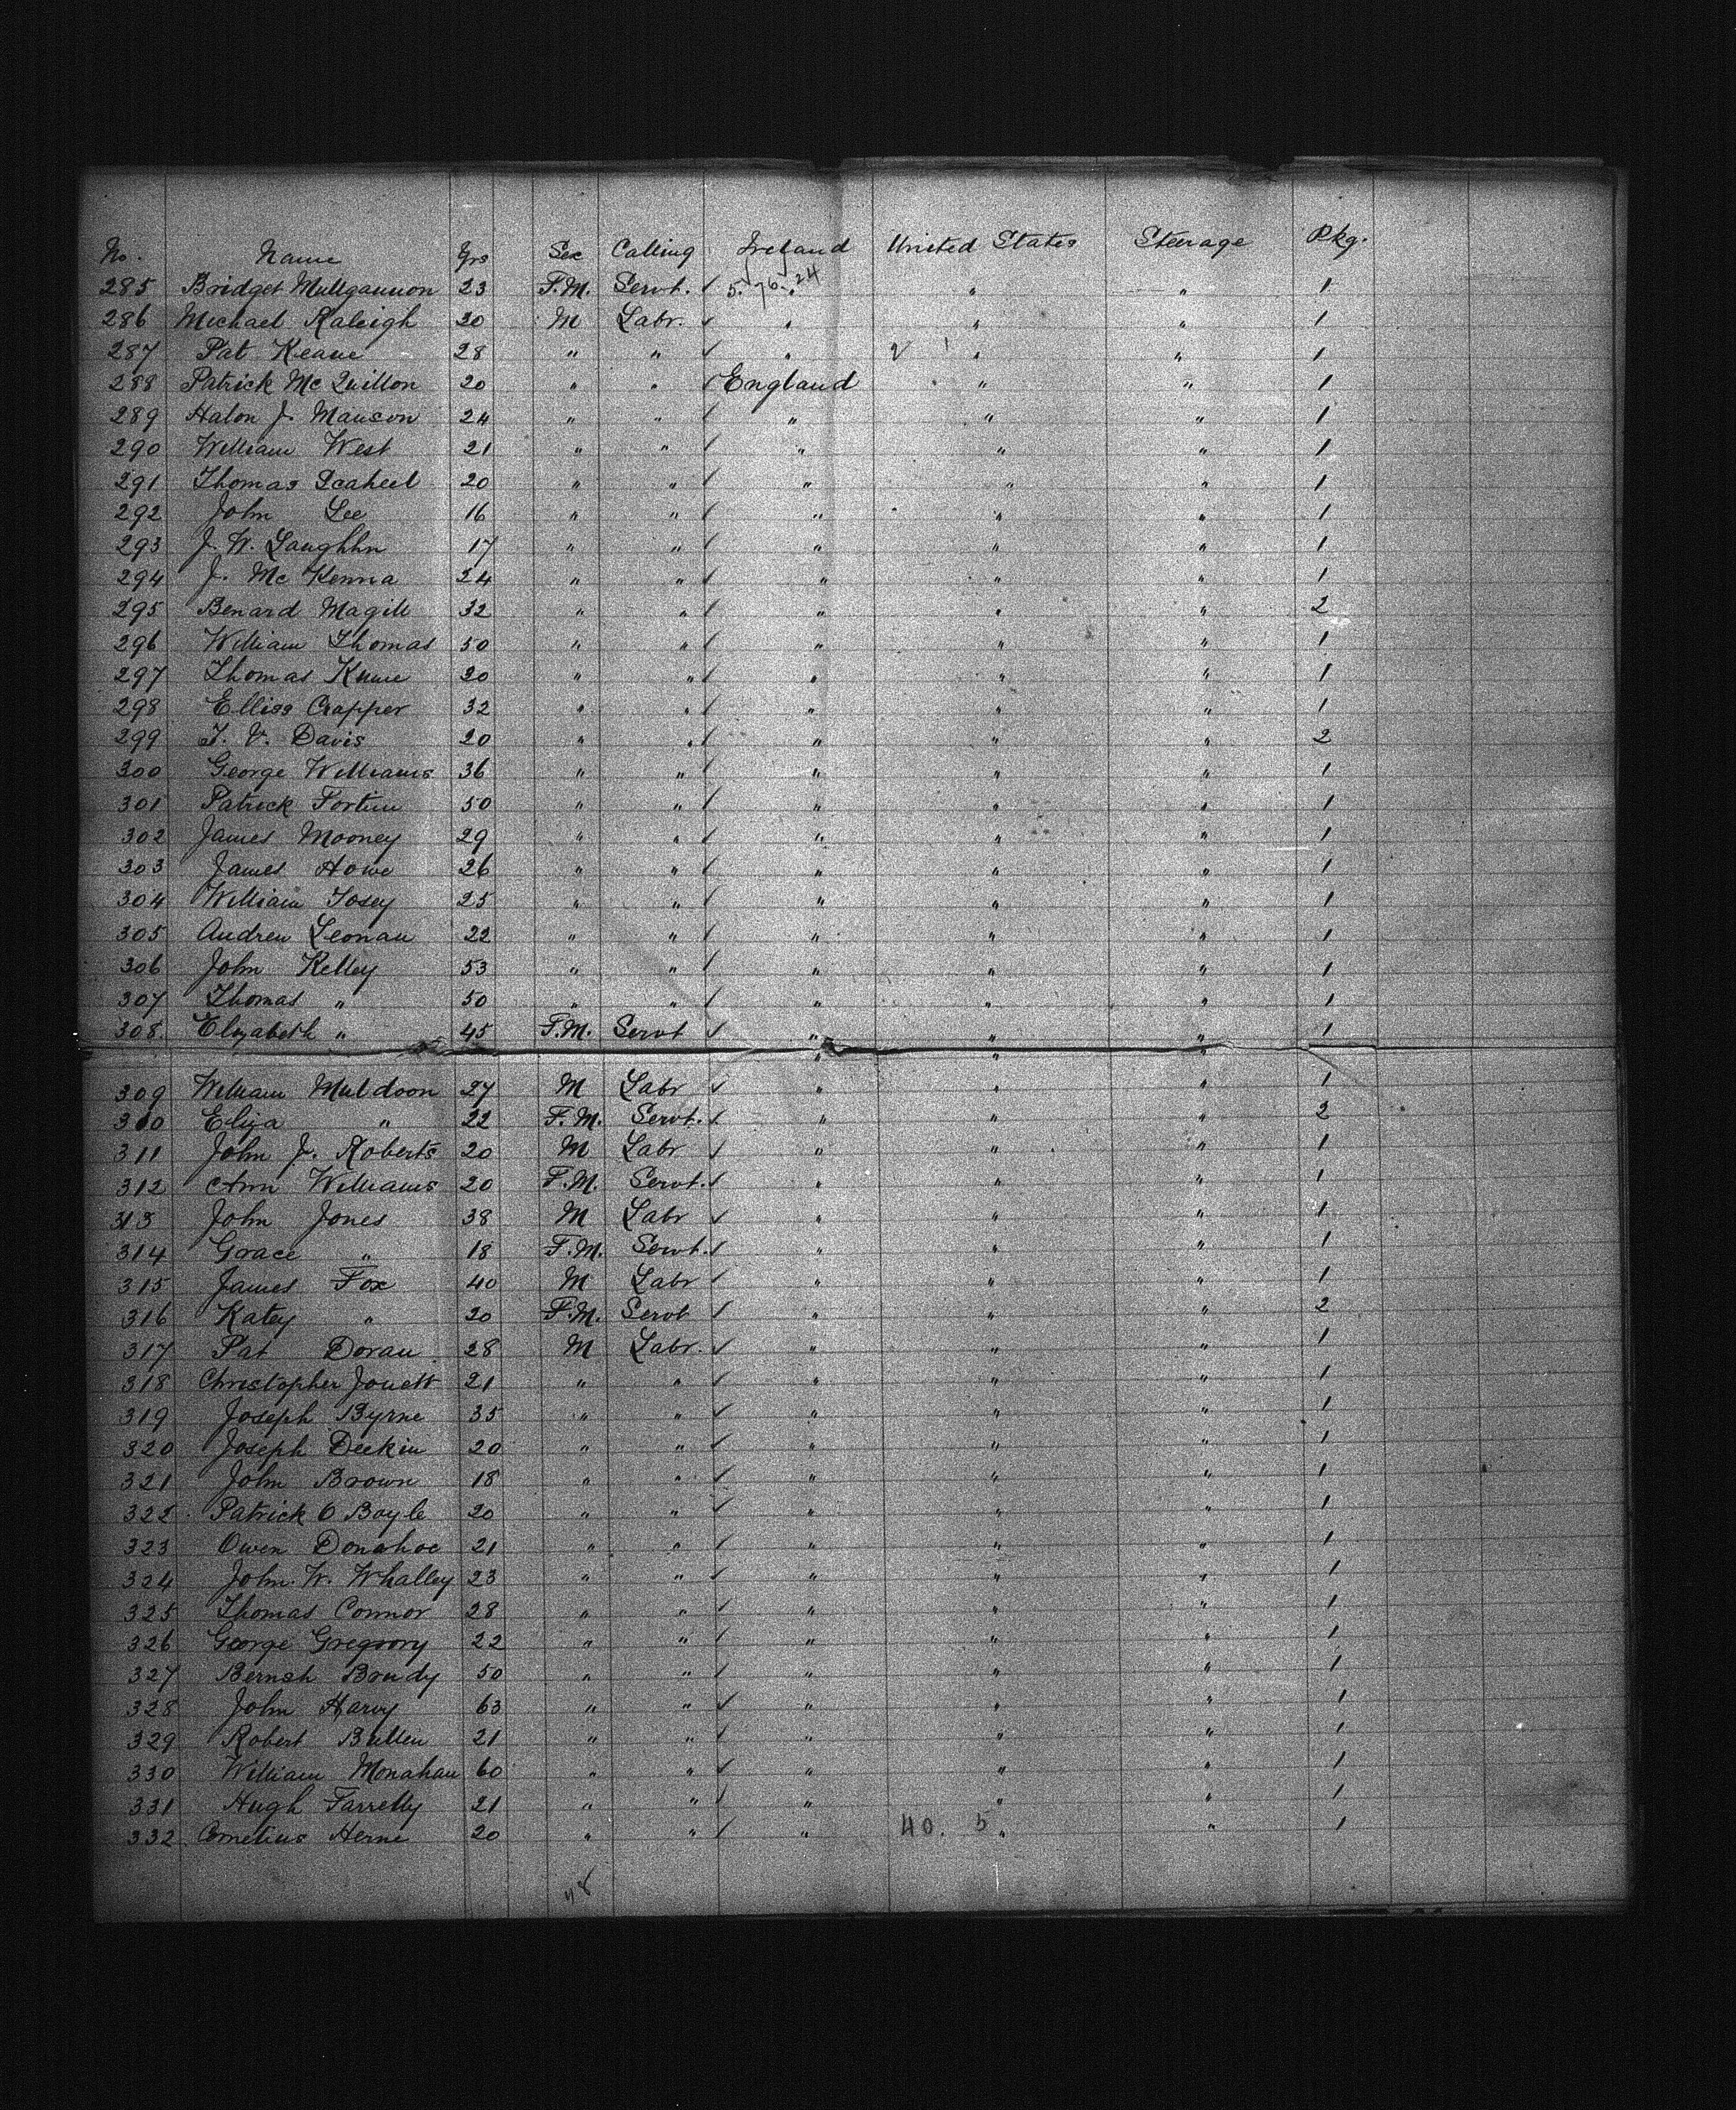 No. Name Yrs Sex Calling Ireland United States Steerage Pkg.
285 Bridget Mullgannon 23 F.M. Servt. ✓ 5. 76. 24 " " " 1
286 Michael Raleigh 30 M Labr. ✓ " " " 1
287 Pat Keane 28 " " ✓ " 2 1 " " 1
288 Patrick McQuillon 20 " " ✓ England " " 1
289 Halon J. Manson 24 " " ✓ " " " 1
290 William West 21 " " ✓ " " " 1
291 Thomas 20 " " ✓ " " " 1
292 John Lee 16 " " ✓ " " " 1
293 J. W. Laughlin 17 " " ✓ " " " 1
294 J. McKenna 24 " " ✓ " " " 1
295 Benard Magill 32 " " ✓ " " " 2
296 William Thomas 50 " " ✓ " " " 1
297 Thomas 20 " " ✓ " " " 1
298 Elliss Crapper 32 " " ✓ " " " 1
299 T. V. Davis 20 " " ✓ " " " 2
300 George Williams 36 " " ✓ " " " 1
301 Patrick Fortun 50 " " ✓ " " " 1
302 James Mooney 29 " " ✓ " " " 1
303 James Howe 26 " " ✓ " " " 1
304 William Tosey 25 " " ✓ " " " 1
305 Andrew Leonan 22 " " ✓ " " " 1
306 John Kelley 53 " " ✓ " " " 1
307 Thomas " 50 " " ✓ " " " 1
308. Elizabeth " 45 F.M. Servt ✓ " " " 1
" " "
309 William Muldoon 27 M Labr ✓ " " " 1
310 Eliza " 22 F.M. Servt. ✓ " " " 2
311 John J. Roberts 20 M Labr ✓ " " " 1
312 Ann Williams 20 F.M. Servt. ✓ " " " 1
313 John Jones 38 M Labr ✓ " " " 1
314 Grace " 18 F.M. Servt. ✓ " " " 1
315 James Fox 40 M Labr ✓ " " " 1
316 Katey " 20 F.M. Servt ✓ " " " 2
317 Pat Doran 28 M Labr. ✓ " " " 1
318 Christopher Jouett 21 " " ✓ " " " 1
319 Joseph Byrne 35 " " ✓ " " " 1
320 Joseph Deekin 20 " " ✓ " " " 1
321 John Brown 18 " " ✓ " " " 1
322 Patrick O Boyle 20 " " ✓ " " " 1
323 Owen Donahoe 21 " " ✓ " " " 1
324 John. W. Whalley 23 " " ✓ " " " 1
325 Thomas Connor 28 " " ✓ " " " 1
326 George Gregsory 22 " " ✓ " " " 1
327 Bernah Brudy 50 " " ✓ " " " 1
328 John Harvy 63 " " ✓ " " " 1
329 Robert Bullen 21 " " ✓ " " " 1
330 William Monahan 60 " " ✓ " " " 1
331 Hugh Farrelly 21 " " ✓ " " " 1
332 Cornelius Herne 20 " " ✓ " 40. 5 " " 1
48